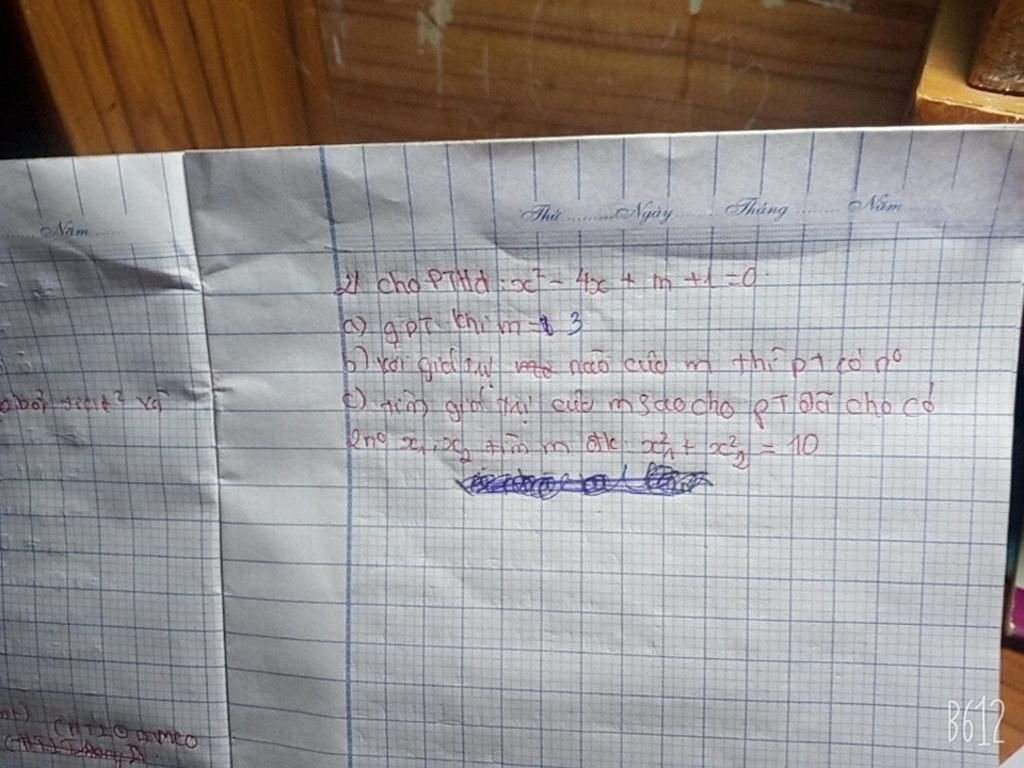 Năm
Thứ ......... Ngày ......... Tháng ......... Năm .........
2) cho PTHđ: x² - 4x + m + 1 = 0
a) gpt khi m = 3
b) với giá trị nào của m thì pt có n⁰
c) tìm giá trị của m sao cho pT đã cho có
2n⁰ x₁, x₂ tìm m đtk: x₁² + x₂² = 10
B612